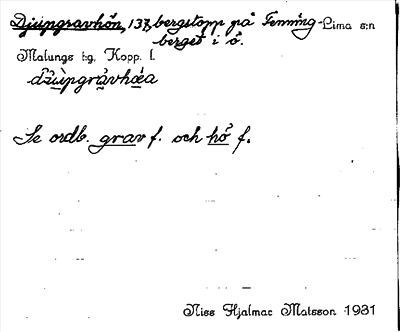 Djupgravhön, 137, bergstopp på Femning- Lima s:n
berget i ö.
Malungs t:g. Kopp. l.
dʒùpgràvhǿa
Se ordb. grav f. och hö f.
Niss Hjalmar Matsson 1931